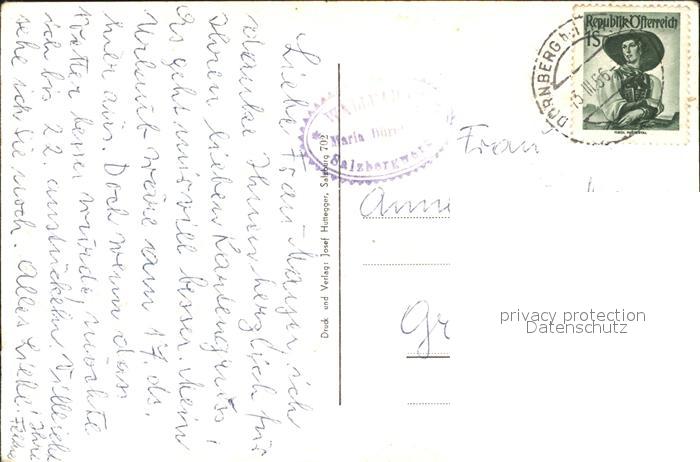 Liebe Frau Mayer, ich
danke Ihnen herzlich für
Ihren lieben Kartengruss,
es geht mir viel besser. Mein
Urlaub wäre am 17. ds.
hier aus. Doch wenn das
Wetter besser würde, möchte
ich bis 22. Vielleicht
sehe ich Sie noch. Alles Liebe! Ihre
Druck und Verlag: Josef Huttegger, Salzburg 702
Maria Dürrnberg
Salzbergwerk
DÜRNBERG bei
13.III.56
Republik Österreich
1S
Frau
Anne
Gr
privacy protection
Datenschutz